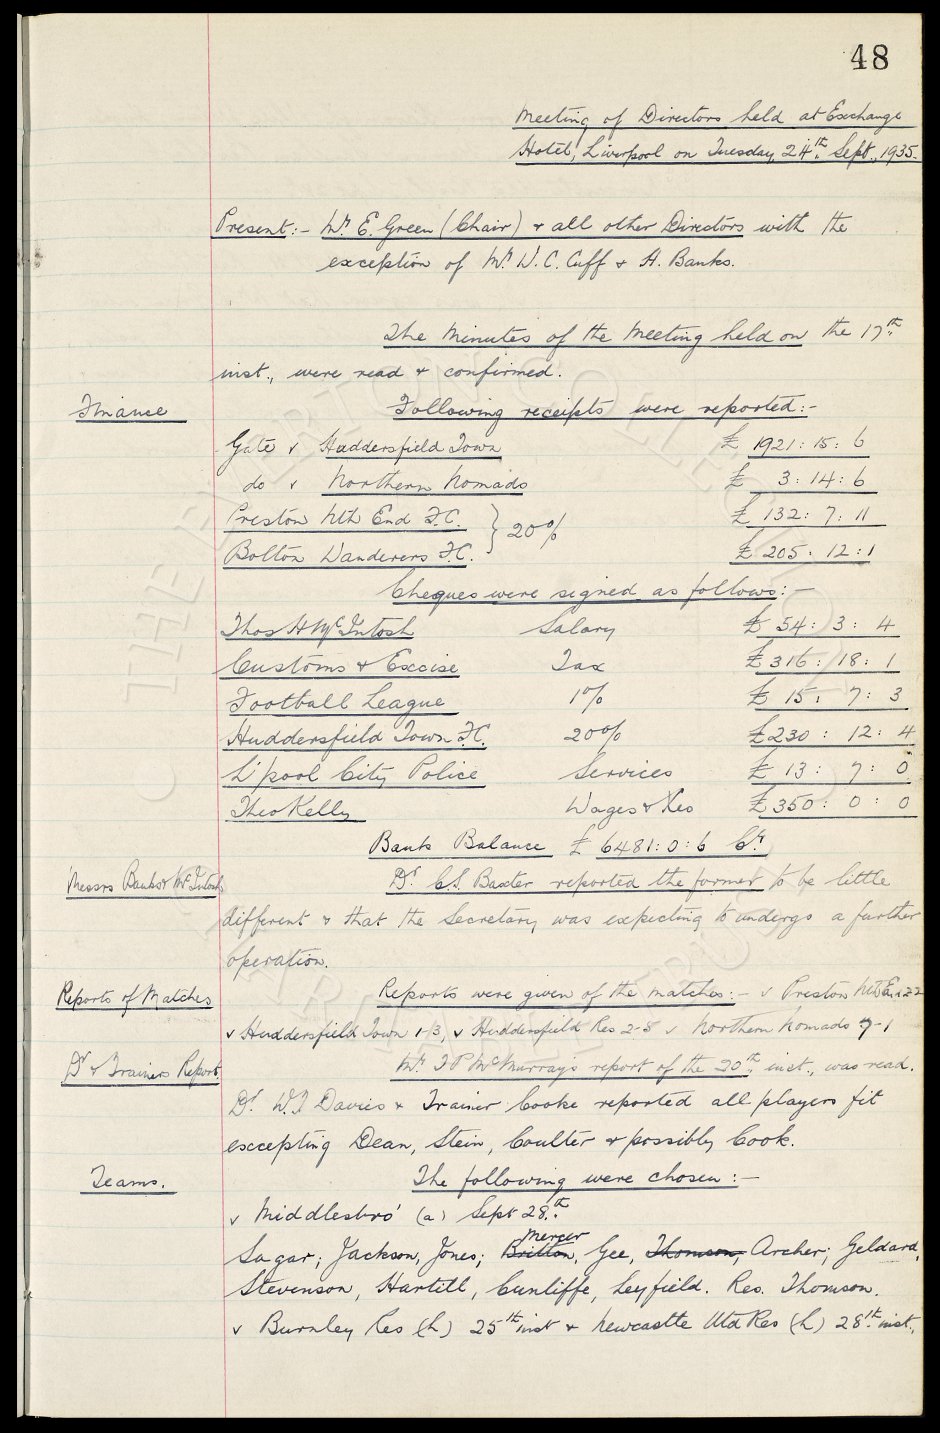 48
Meeting of Directors held at Exchange
Hotel, Liverpool on Tuesday, 24th. Sept., 1935.
Present:- Mr. E. Green (Chair) & all other Directors with the
exception of Mr. W. C. Cuff & A. Banks.
The Minutes of the Meeting held on the 17th.
inst., were read & confirmed.
Finance Following receipts were reported:-
Gate v Huddersfield Town £ 1921: 15: 6
do v Northern Nomads £ 3: 14: 6
Preston Nth End F.C. } 20% £ 132: 7: 11
Bolton Wanderers F.C. £ 205: 12: 1
Cheques were signed as follows:-
Thos H McIntosh Salary £ 54: 3: 4
Customs & Excise Tax £ 316: 18: 1
Football League 1% £ 15: 7: 3
Huddersfield Town F.C. 20% £ 230: 12: 4
L'pool City Police Services £ 13: 7: 0
Theo Kelly Wages & Xes £ 350: 0: 0
Bank Balance £ 6481: 0: 6 Cr.
Messrs Banks & McIntosh Dr. C.S. Baxter reported the former to be little
different & that the Secretary was expecting to undergo a further
operation.
Reports of Matches Reports were given of the matches:- v Preston Nth End 2-2
v Huddersfield Town 1-3, v Huddersfield Res 2-5 v Northern Nomads 7-1
Dr & Trainers Report. Mr. J P McMurray's report of the 20th. inst., was read.
Dr. W.J Davies & Trainer Cooke reported all players fit
excepting Dean, Stein, Coulter & possibly Cook.
Teams. The following were chosen:-
v Middlesbro' (a) Sept 28th.
Mercer
Sagar; Jackson, Jones; Britton, Gee, Thomson, Archer; Geldard,
Stevenson, Hartill, Cunliffe, Leyfield. Res. Thomson.
v Burnley Res (h) 25th inst & Newcastle Utd Res (h) 28th. inst.,
THE EVERTON COLLECTION